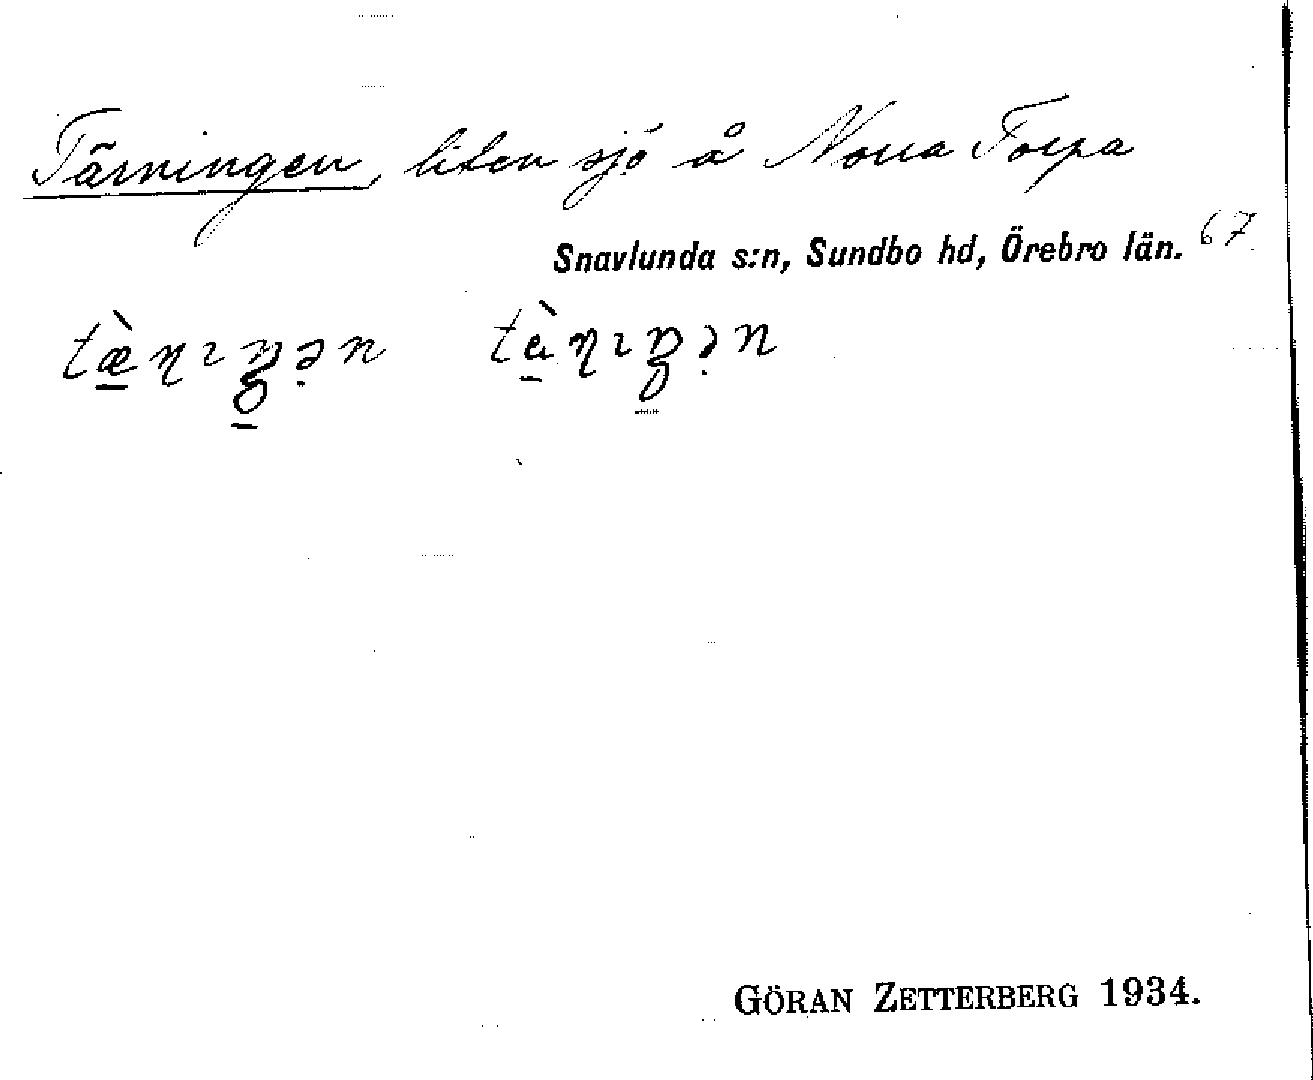 Tärningen, liten sjö å Norra Torpa
Snavlunda s:n, Sundbo hd, Örebro län. 67
GÖRAN ZETTERBERG 1934.